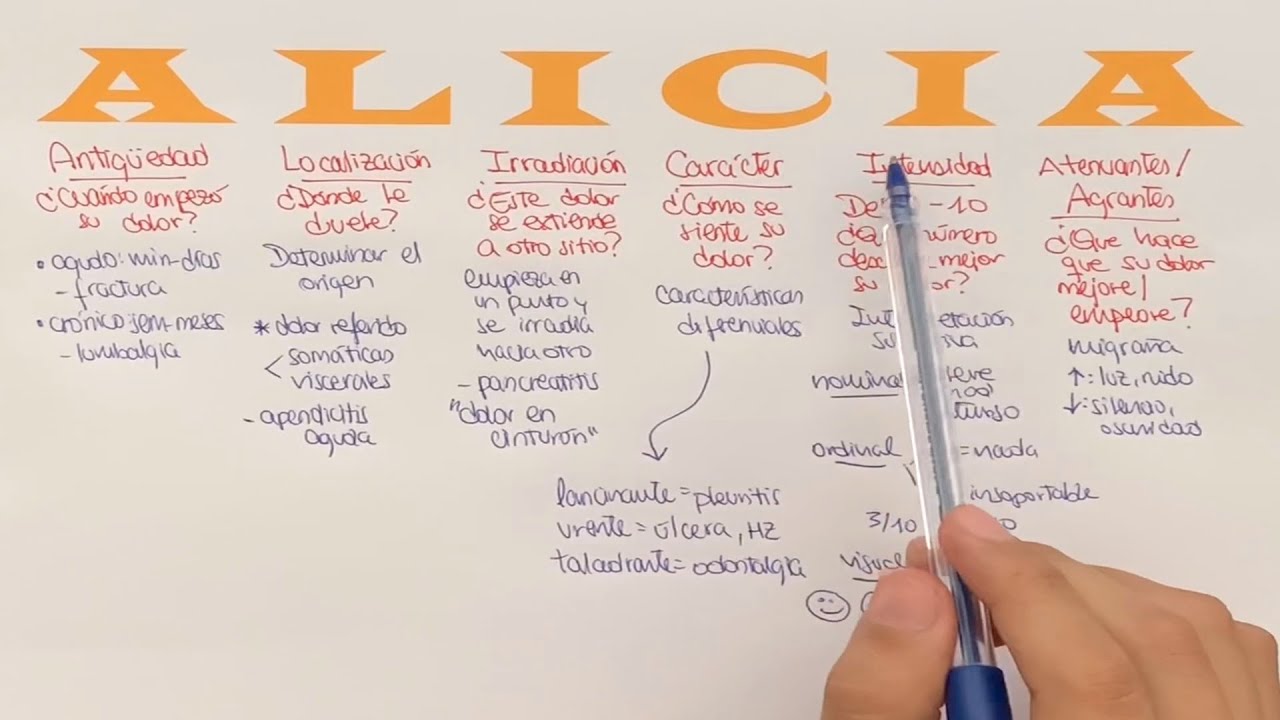 ALICIA
Antigüedad
¿Cuándo empezó
su dolor?
• agudo: min-días
- fractura
• crónico: sem-meses
- lumbalgia
Localización
¿Dónde le
duele?
Determinar el
origen
* dolor referido
< somáticas
viscerales
- apendicitis
aguda
Irradiación
¿Este dolor
se extiende
a otro sitio?
empieza en
un punto y
se irradia
hacia otro
- pancreatitis
"dolor en
cinturón"
Carácter
¿Cómo se
siente su
dolor?
características
diferenciales
lancinante = pleuritis
urente = úlcera, HZ
taladrante = odontalgia
Intensidad
De -10
número
mejor
su
nominal
ordinal = nada
insoportable
3/10
Atenuantes/
Agrantes
¿Que hace
que su dolor
mejore/
empeore?
migraña
↑: luz, ruido
↓: silencio,
oscuridad